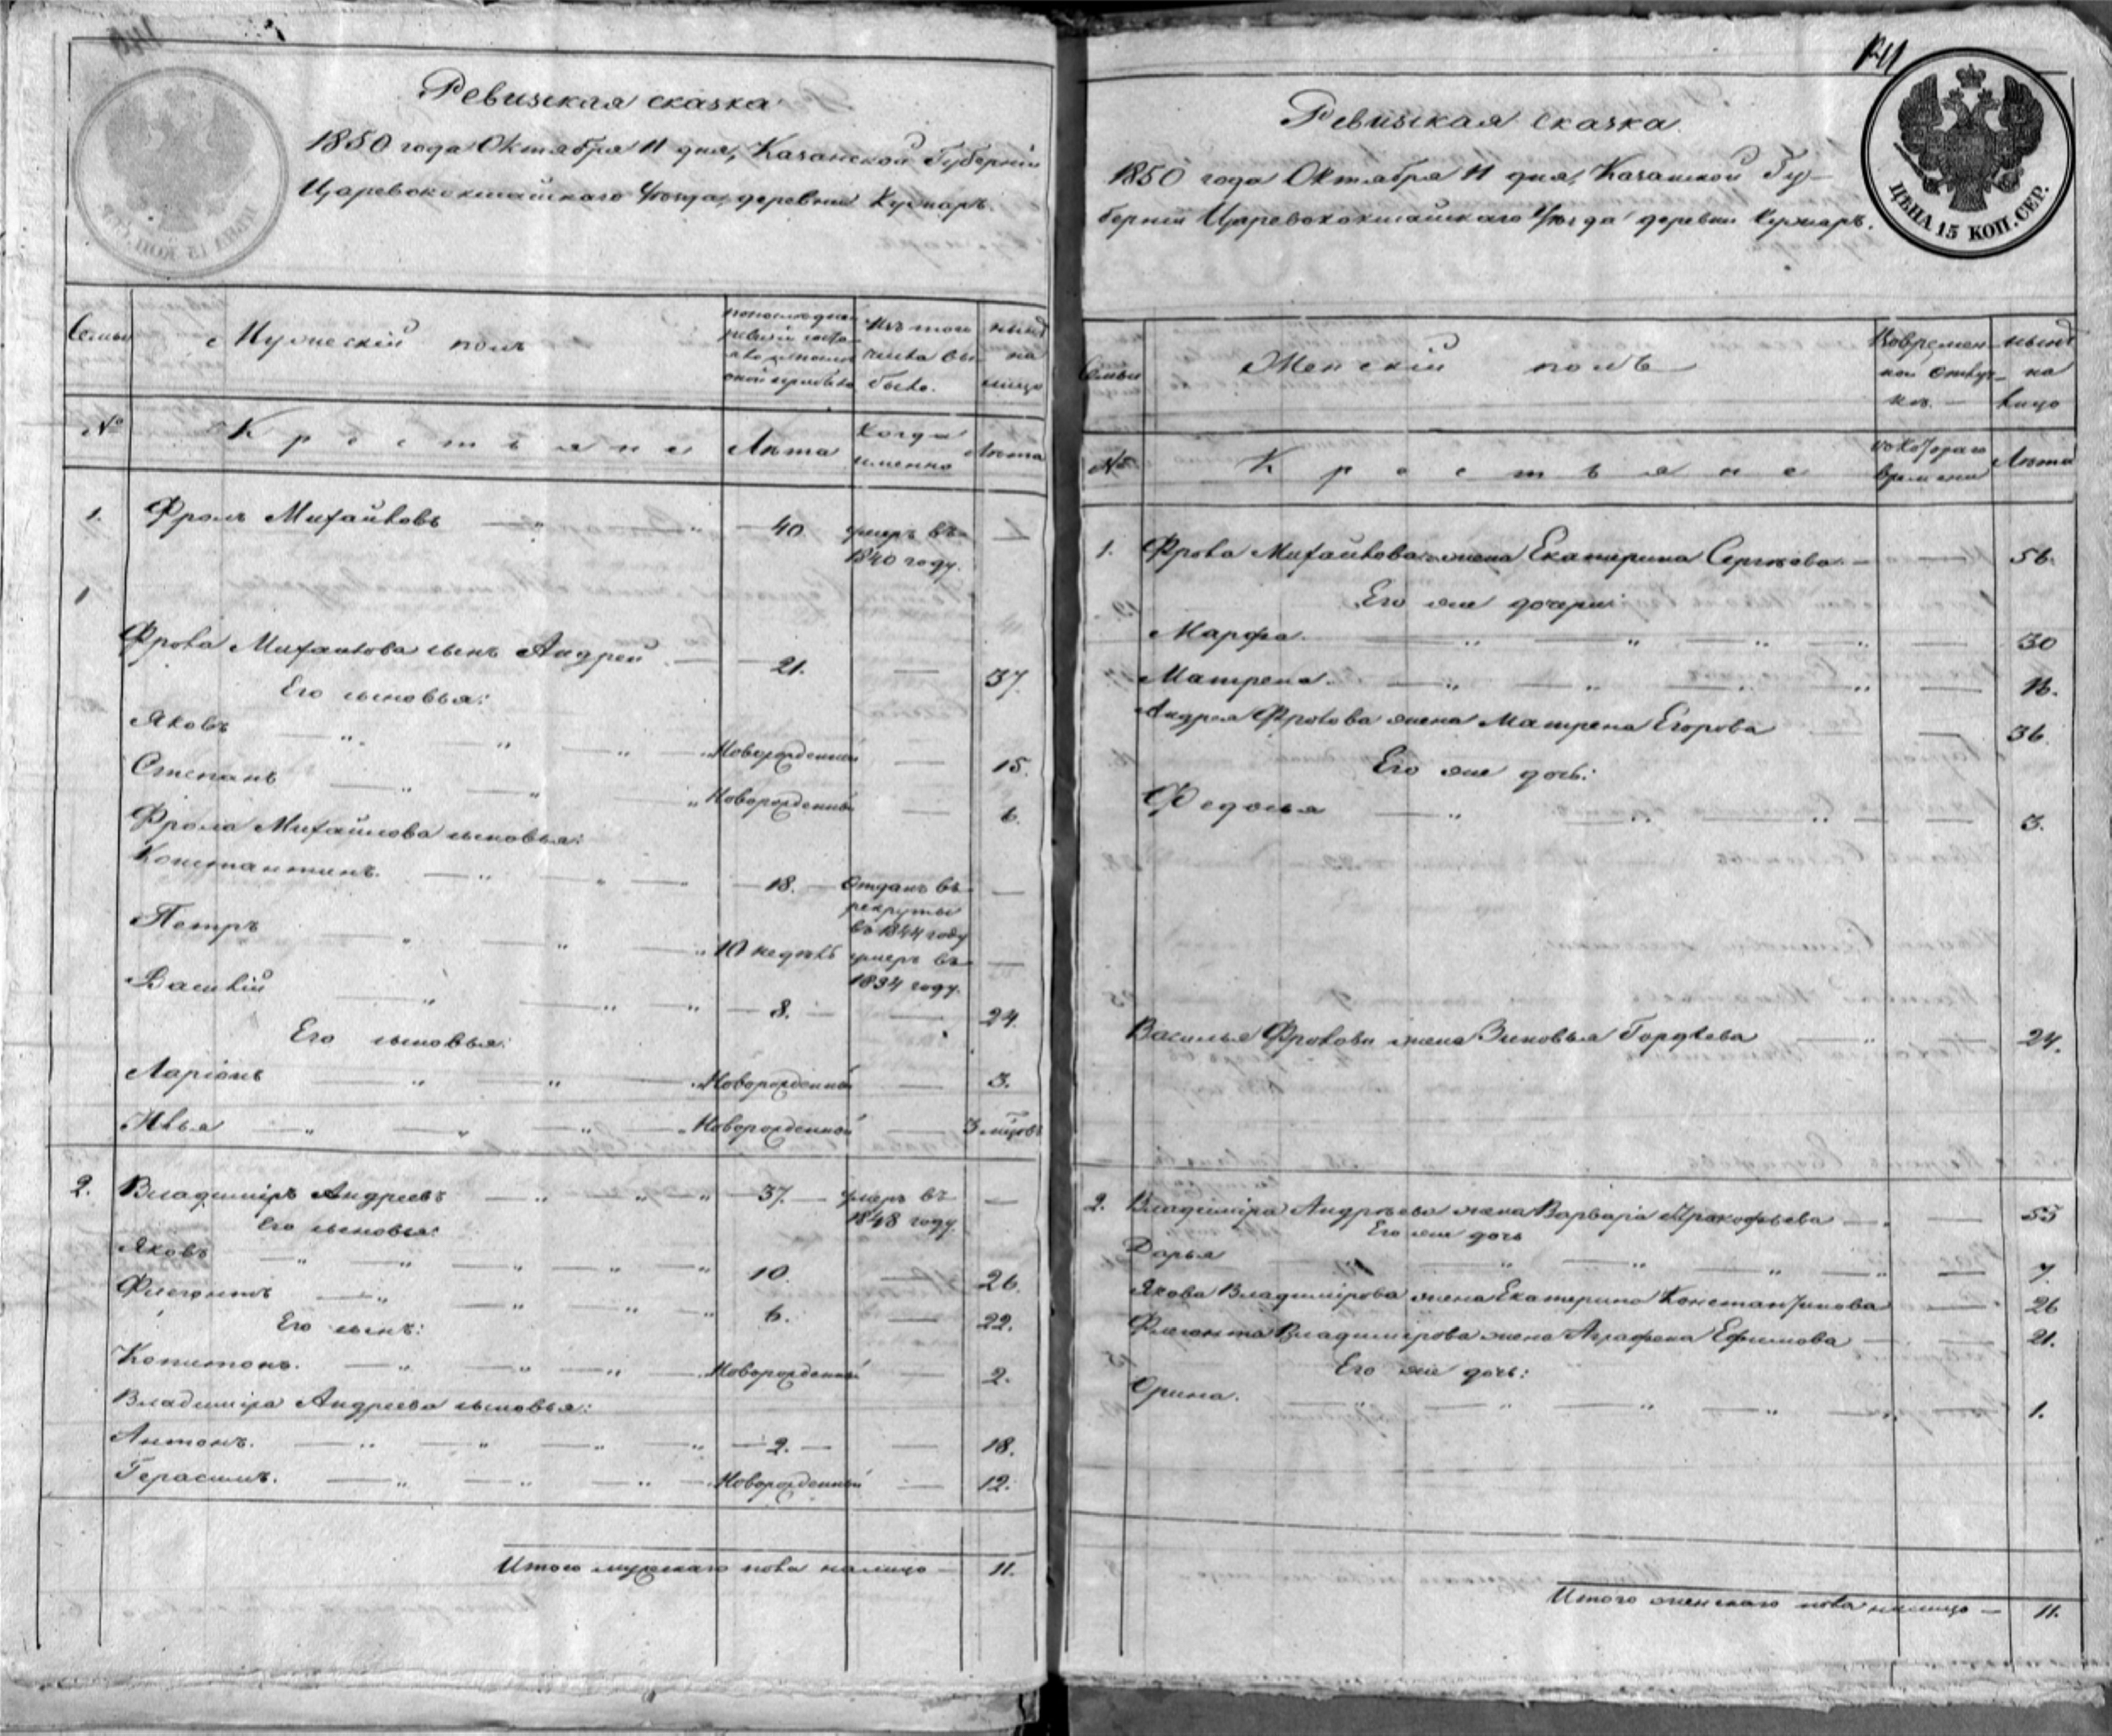 Ревизская сказка
1850 года Октября 11 дня, Казанской Губернии
Царевококшайскаго Уѣзда, деревни Кужмаръ.
Семьи
Мужескій полъ
по последней ревизіи состояло и после оной прибыло
Изъ того числа выбыло.
нынѣ на лицо
№
Крестьяне
Лѣта
Когда именно
Лѣта
1. Фролъ Михайловъ — " — " — 40 умеръ въ 1840 году. —
1
Фрола Михайлова сынъ Андрей — 21. — 37.
Его сыновья:
Яковъ — " — " — " — Новорожденный — 15.
Степанъ — " — " — " Новорожденный — 6.
Фрола Михайлова сыновья:
Констант­инъ. — " — " — 18. — Отданъ въ рекруты въ 1844 году —
Петръ — " — " — " 10 недѣль умеръ въ 1834 году. —
Василій — " — " — " — 8. — — 24.
Его сыновья:
Ларіонъ " " — " Новорожденный — 3.
Илья — " — " — " — " Новорожденный — 3 мѣцовъ
2. Владиміръ Андреевъ — " — " — " — 37. — умеръ въ 1848 году. —
Его сыновья:
Яковъ — " — " — " — " — " 10. — 26.
Флегонтъ — " — " — " — " 6. — 22.
Его сынъ:
Копитонъ. — " — " — " — Новорожденный — 2.
Владиміра Андреева сыновья:
Антонъ. — " — " — " — " — 2. — — 18.
Герасимъ. — " — " — " — Новорожденный — 12.
Итого мужскаго пола налицо — 11.
141
Ревизская сказка.
1850 года Октября 11 дня, Казанской Гу-
берніи Царевококшайскаго Уѣзда деревни Кужмаръ.
ЦѢНА 15 КОП. СЕР.
Семьи
Женскій полъ
Во временной отлучкѣ. —
нынѣ на лицо
№
Крестьяне
съ котораго времени
Лѣта
1. Фрола Михайлова жена Екатерина Сергѣева — — 56.
Его же дочери:
Марфа. — " — " — " — " — 30
Матрена. — " — " — " — " — 16.
Андрея Фролова жена Матрена Егорова — 36.
Его же дочь:
Федосья — " — " — " — — 3.
Василья Фролова жена Зиновья Гордѣева — " — 24.
2. Владиміра Андрѣева жена Варвара Прокофьева — " — 55
Его же дочь
Дарья — " — " — " — " — " — 7.
Якова Владимірова жена Екатерина Константинова — 26
Флегонта Владимірова жена Аграфена Ефимова — — 21.
Его же дочь:
Орина. — " — " — " — " — " — 1.
Итого женскаго пола налицо — 11.